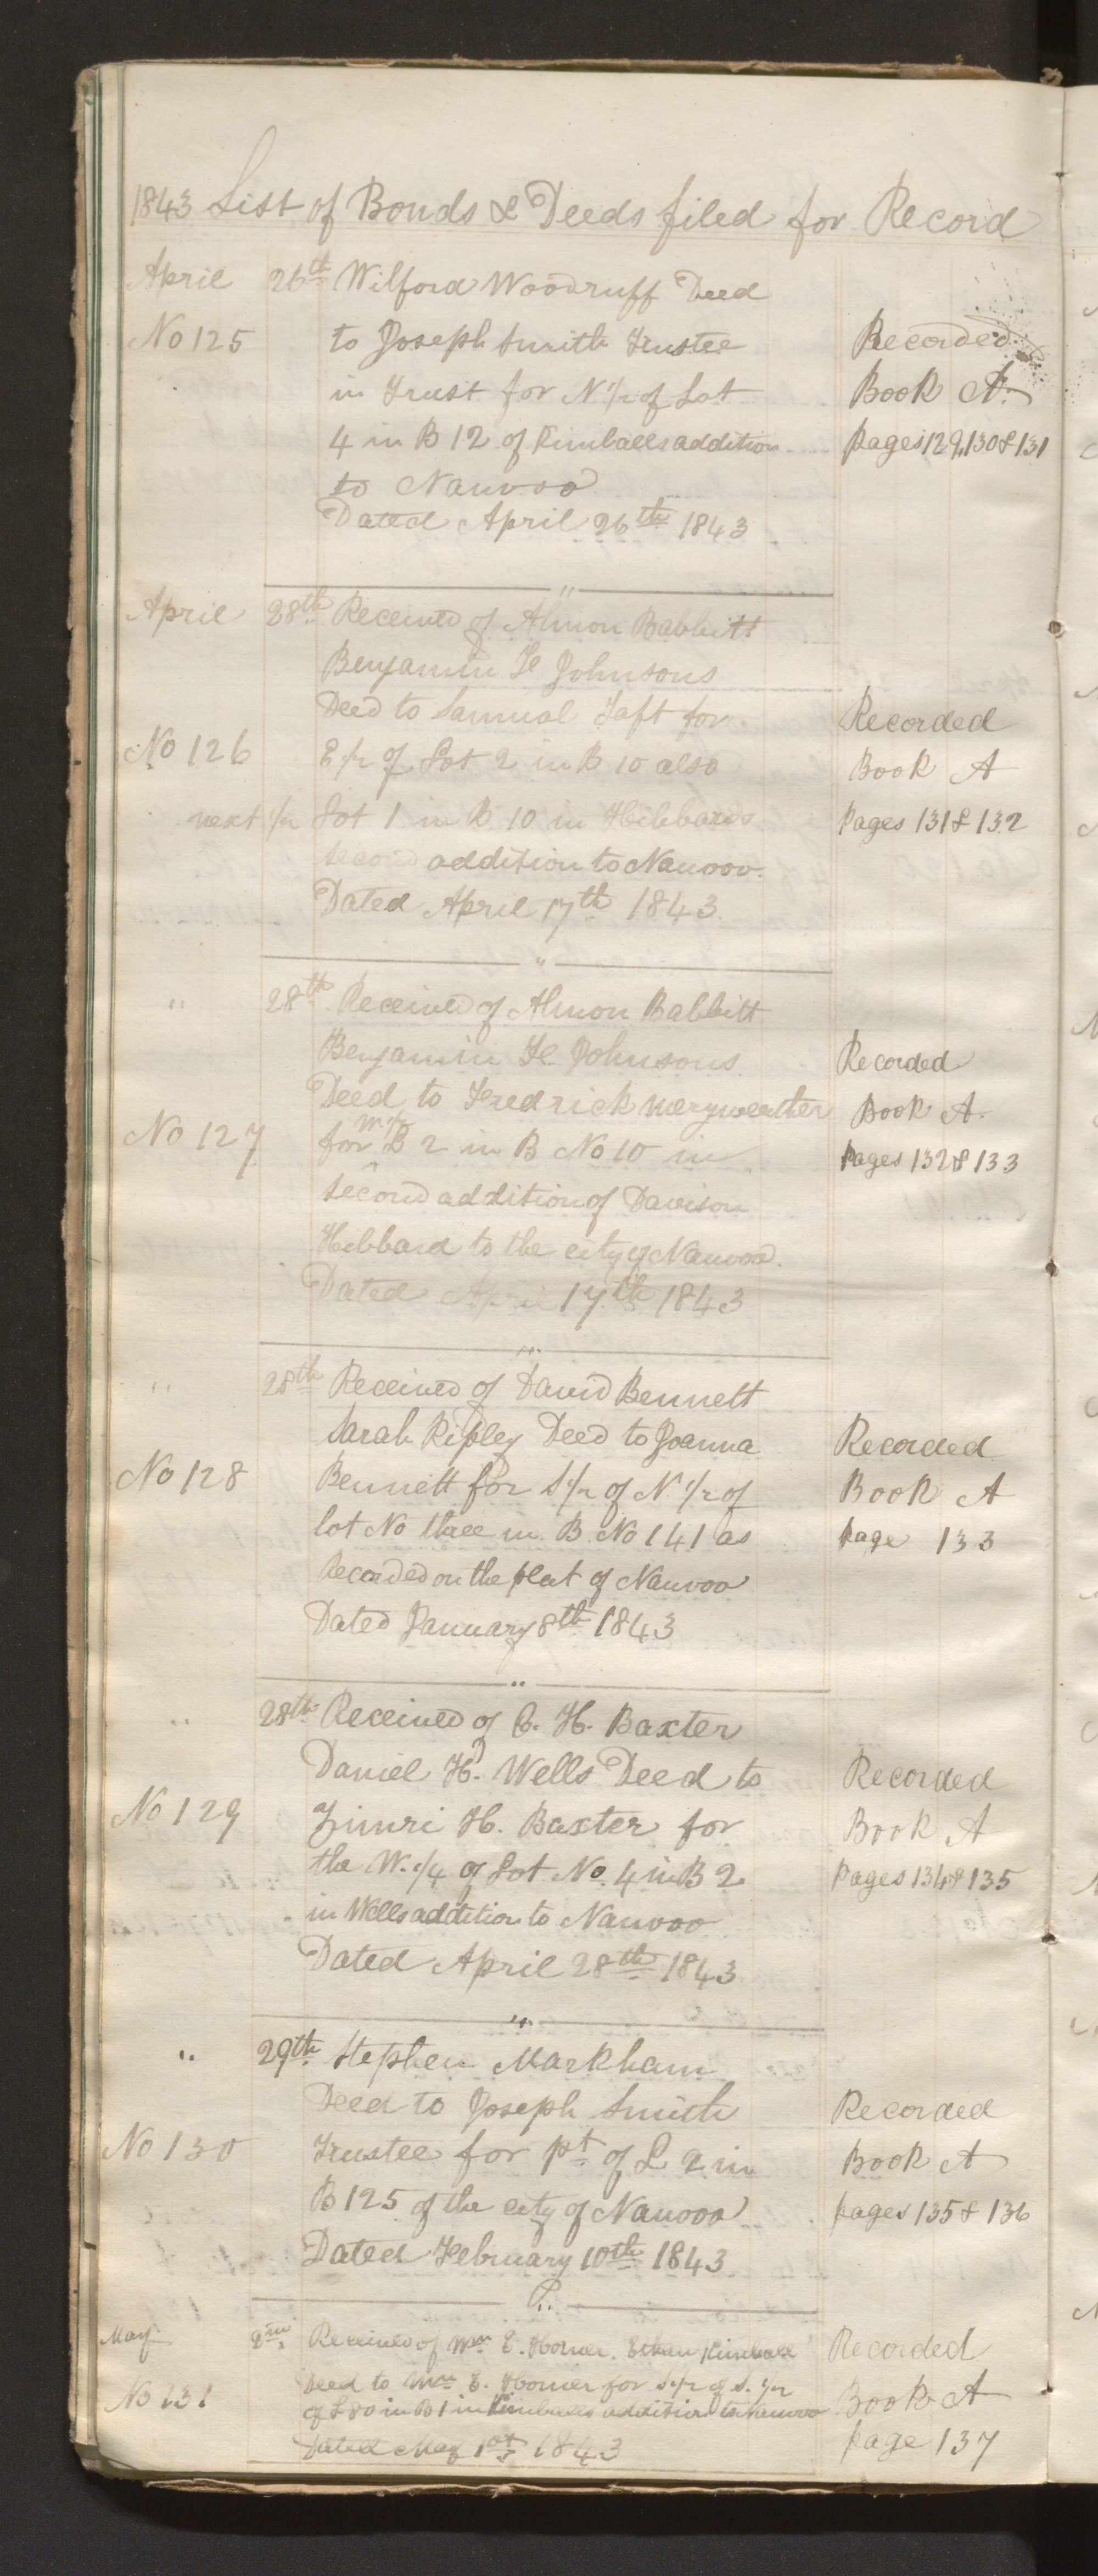 1843 List of Bonds & Deeds filed for Record
April 26th Wilford Woodruff Deed
No 125 to Joseph Smith Trustee Recorded
in Trust for N 1/2 of Lot Book A.
4 in B 12 of Kimballs addition pages 129, 130 & 131
to Nauvoo
Dated April 26th 1843
"
April 28th Received of Almon Babbitt
Benjamin F Johnsons
Deed to Samual Taft for Recorded
No 126 E 1/2 of Lot 2 in B 10 also Book A
next 1/2 Lot 1 in B 10 in Hibbards pages 131 & 132
second addition to Nauvoo.
Dated April 17th 1843.
"
" 28th Received of Almon Babbitt
Benjamin F Johnsons Recorded
Deed to Fredrick meryweather Book A.
W 1/2
No 127 for L 2 in B No 10 in pages 132 & 133
second addition of Davison
Hibbard to the city of Nauvoo.
Dated April 17th 1843
"
" 28th Received of David Bennett
Sarah Ripley Deed to Joanna Recorded
No 128 Bennett for S 1/2 of N 1/2 of Book A
lot No three in B No 141 as page 133
Recorded on the plat of Nauvoo
Dated January 8th 1843
"
" 28th Received of Z. H. Baxter
Daniel H. Wells Deed to Recorded
No 129 Zimri H. Baxter for Book A
the W. 1/4 of Lot No. 4 in B 2 pages 134 & 135
in Wells addition to Nauvoo
Dated April 28th 1843
"
" 29th Stephen Markham
Deed to Joseph Smith Recorded
No 130 Trustee for pt of L 2 in Book A
B 125 of the city of Nauvoo pages 135 & 136
Dated February 10th 1843
May 2nd Received of Wm E. Horner. Ethan Kimball Recorded
No 131 Deed to Wm E. Horner for S 1/2 of S. 1/2 Book A
of L 80 in B 1 in Kimballs addition to Nauvoo
Dated May 1st 1843 page 137